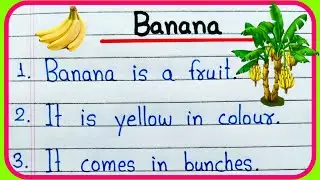 Banana
1. Banana is a fruit.
2. It is yellow in colour.
3. It comes in bunches.